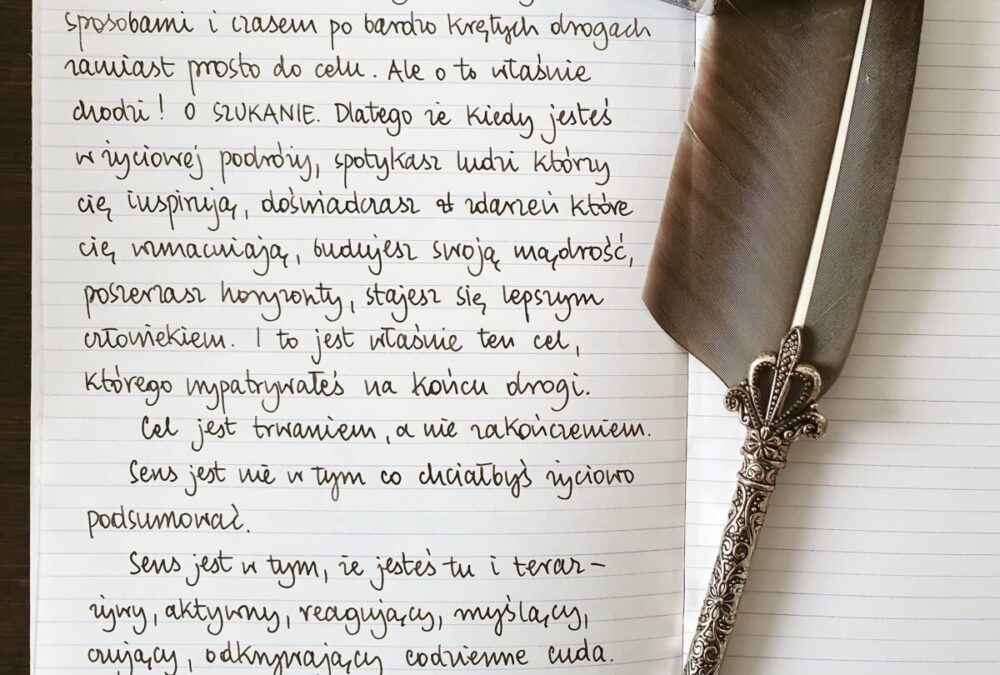 sposobami i czasem po bardzo krętych drogach
zamiast prosto do celu. Ale o to właśnie
chodzi! O SZUKANIE. Dlatego że kiedy jesteś
w życiowej podróży, spotykasz ludzi którzy
cię inspirują, doświadczasz zdarzeń które
cię wzmacniają, budujesz swoją mądrość,
poszerzasz horyzonty, stajesz się lepszym
człowiekiem. I to jest właśnie ten cel,
którego wypatrywałeś na końcu drogi.
Cel jest trwaniem, a nie zakończeniem.
Sens jest nie w tym co chciałbyś życiowo
podsumować.
Sens jest w tym, że jesteś tu i teraz –
żywy, aktywny, reagujący, myślący,
czujący, odkrywający codzienne cuda.